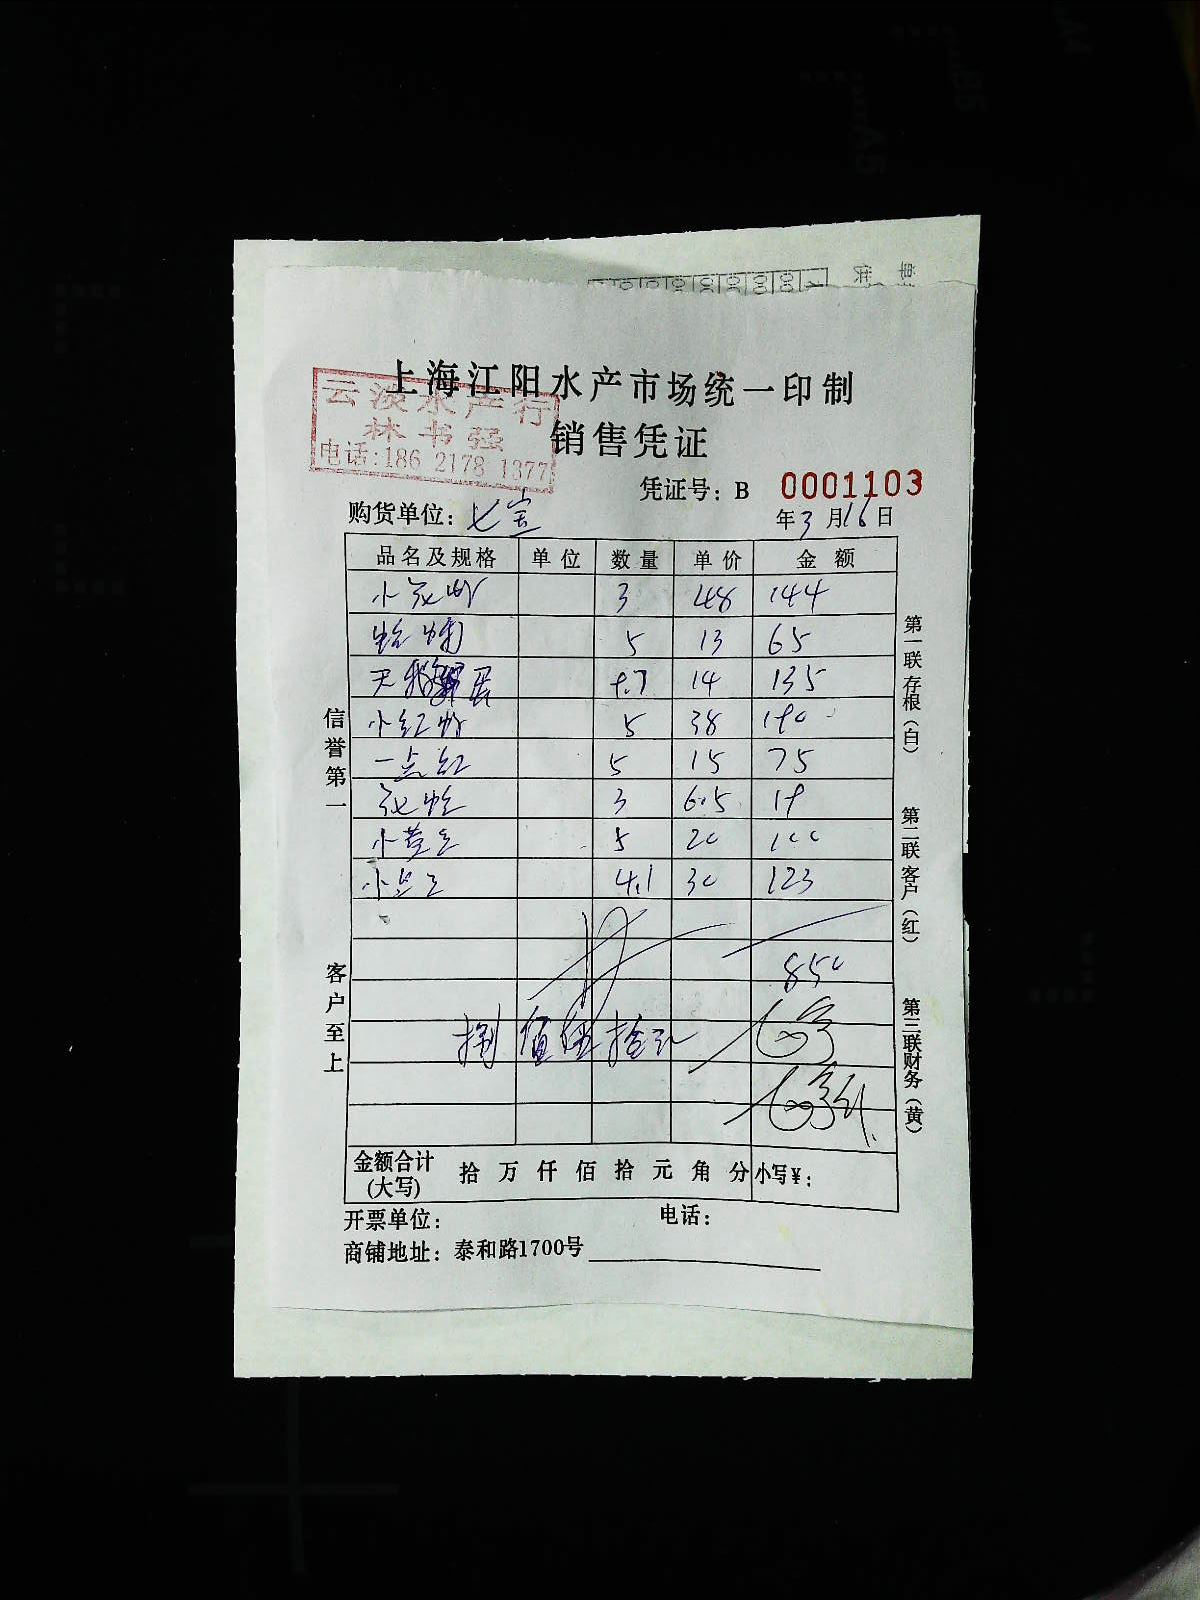 上海江阳水产市场统一印制
云淡水产行
林书强
电话:186 2178 1377
销售凭证
凭证号: B 0001103
购货单位: 七宝
年 3 月 16 日
品名及规格 单位 数量 单价 金额
小花蚶 3 48 144
蛤蜊 5 13 65
天鹅蛋 9.7 14 135
小红蚶 5 38 190
一点红 5 15 75
花蛤 3 6.5 19
小黄王 5 20 100
4.1 30 123
850
捌佰伍拾元
金额合计(大写) 拾 万 仟 佰 拾 元 角 分 小写¥:
开票单位: 电话:
商铺地址: 泰和路1700号
信誉第一
客户至上
第一联 存根(白)
第二联 客户(红)
第三联 财务(黄)